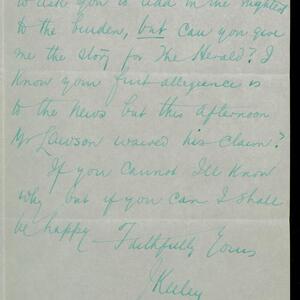 to ask you to add in the slightest
to the burden, but can you give
me the story for The Herald? I
know your first allegiance is
to the News but this afternoon
Mr Lawson waived his claim?
If you cannot I'll know
why but if you can I shall
be happy — Faithfully Yours
Keeley